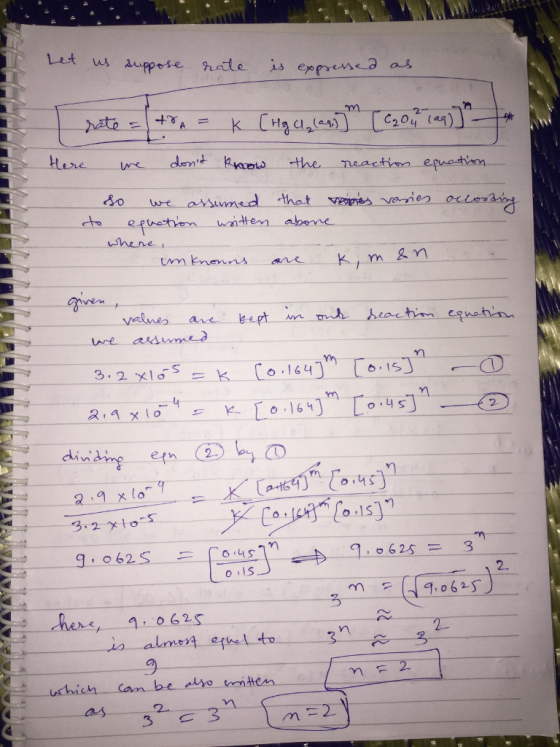 Let us suppose rate is expressed as
rate = +r_A = K [HgCl2(aq)]^m [C2O4^2-(aq)]^n —*
Here we don't know the reaction equation
so we assumed that varies according
to equation written above
where,
unknowns are K, m & n
given,
values are kept in our reaction equation
we assumed
3.2 × 10^-5 = K [0.164]^m [0.15]^n — ①
2.9 × 10^-4 = K [0.164]^m [0.45]^n — ②
dividing eqn ② by ①
2.9 × 10^-4 / 3.2 × 10^-5 = K [0.164]^m [0.45]^n / K [0.164]^m [0.15]^n
9.0625 = [0.45/0.15]^n ⟹ 9.0625 = 3^n
3^n = (√9.0625)^2
≈
3^n ≈ 3^2
n = 2
here, 9.0625
is almost equal to
9
which can be also written
as 3^2 = 3^n n = 2